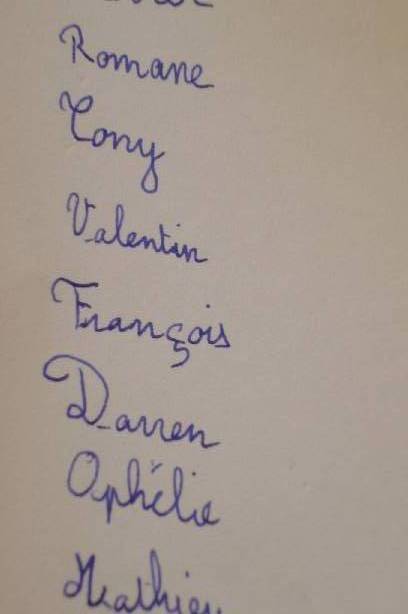 Romane
Tony
Valentin
François
Darren
Ophélie
Mathieu